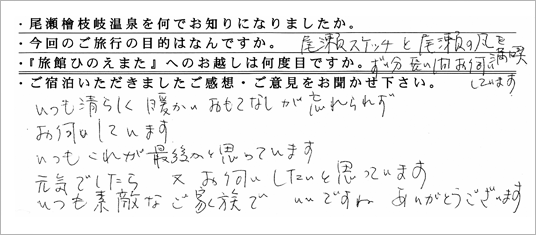 ・尾瀬檜枝岐温泉を何でお知りになりましたか。
・今回のご旅行の目的はなんですか。 尾瀬スケッチと尾瀬の風を満喫
・『旅館ひのえまた』へのお越しは何度目ですか。 ずい分長い間お伺い
しています
・ご宿泊いただきましたご感想・ご意見をお聞かせ下さい。
いつも清らしく暖かいおもてなしが忘れられず
お伺いしています
いつもこれが最後かと思っています
元気でしたら 又 お伺いしたいと思っています
いつも素敵なご家族で いいですね ありがとうございます